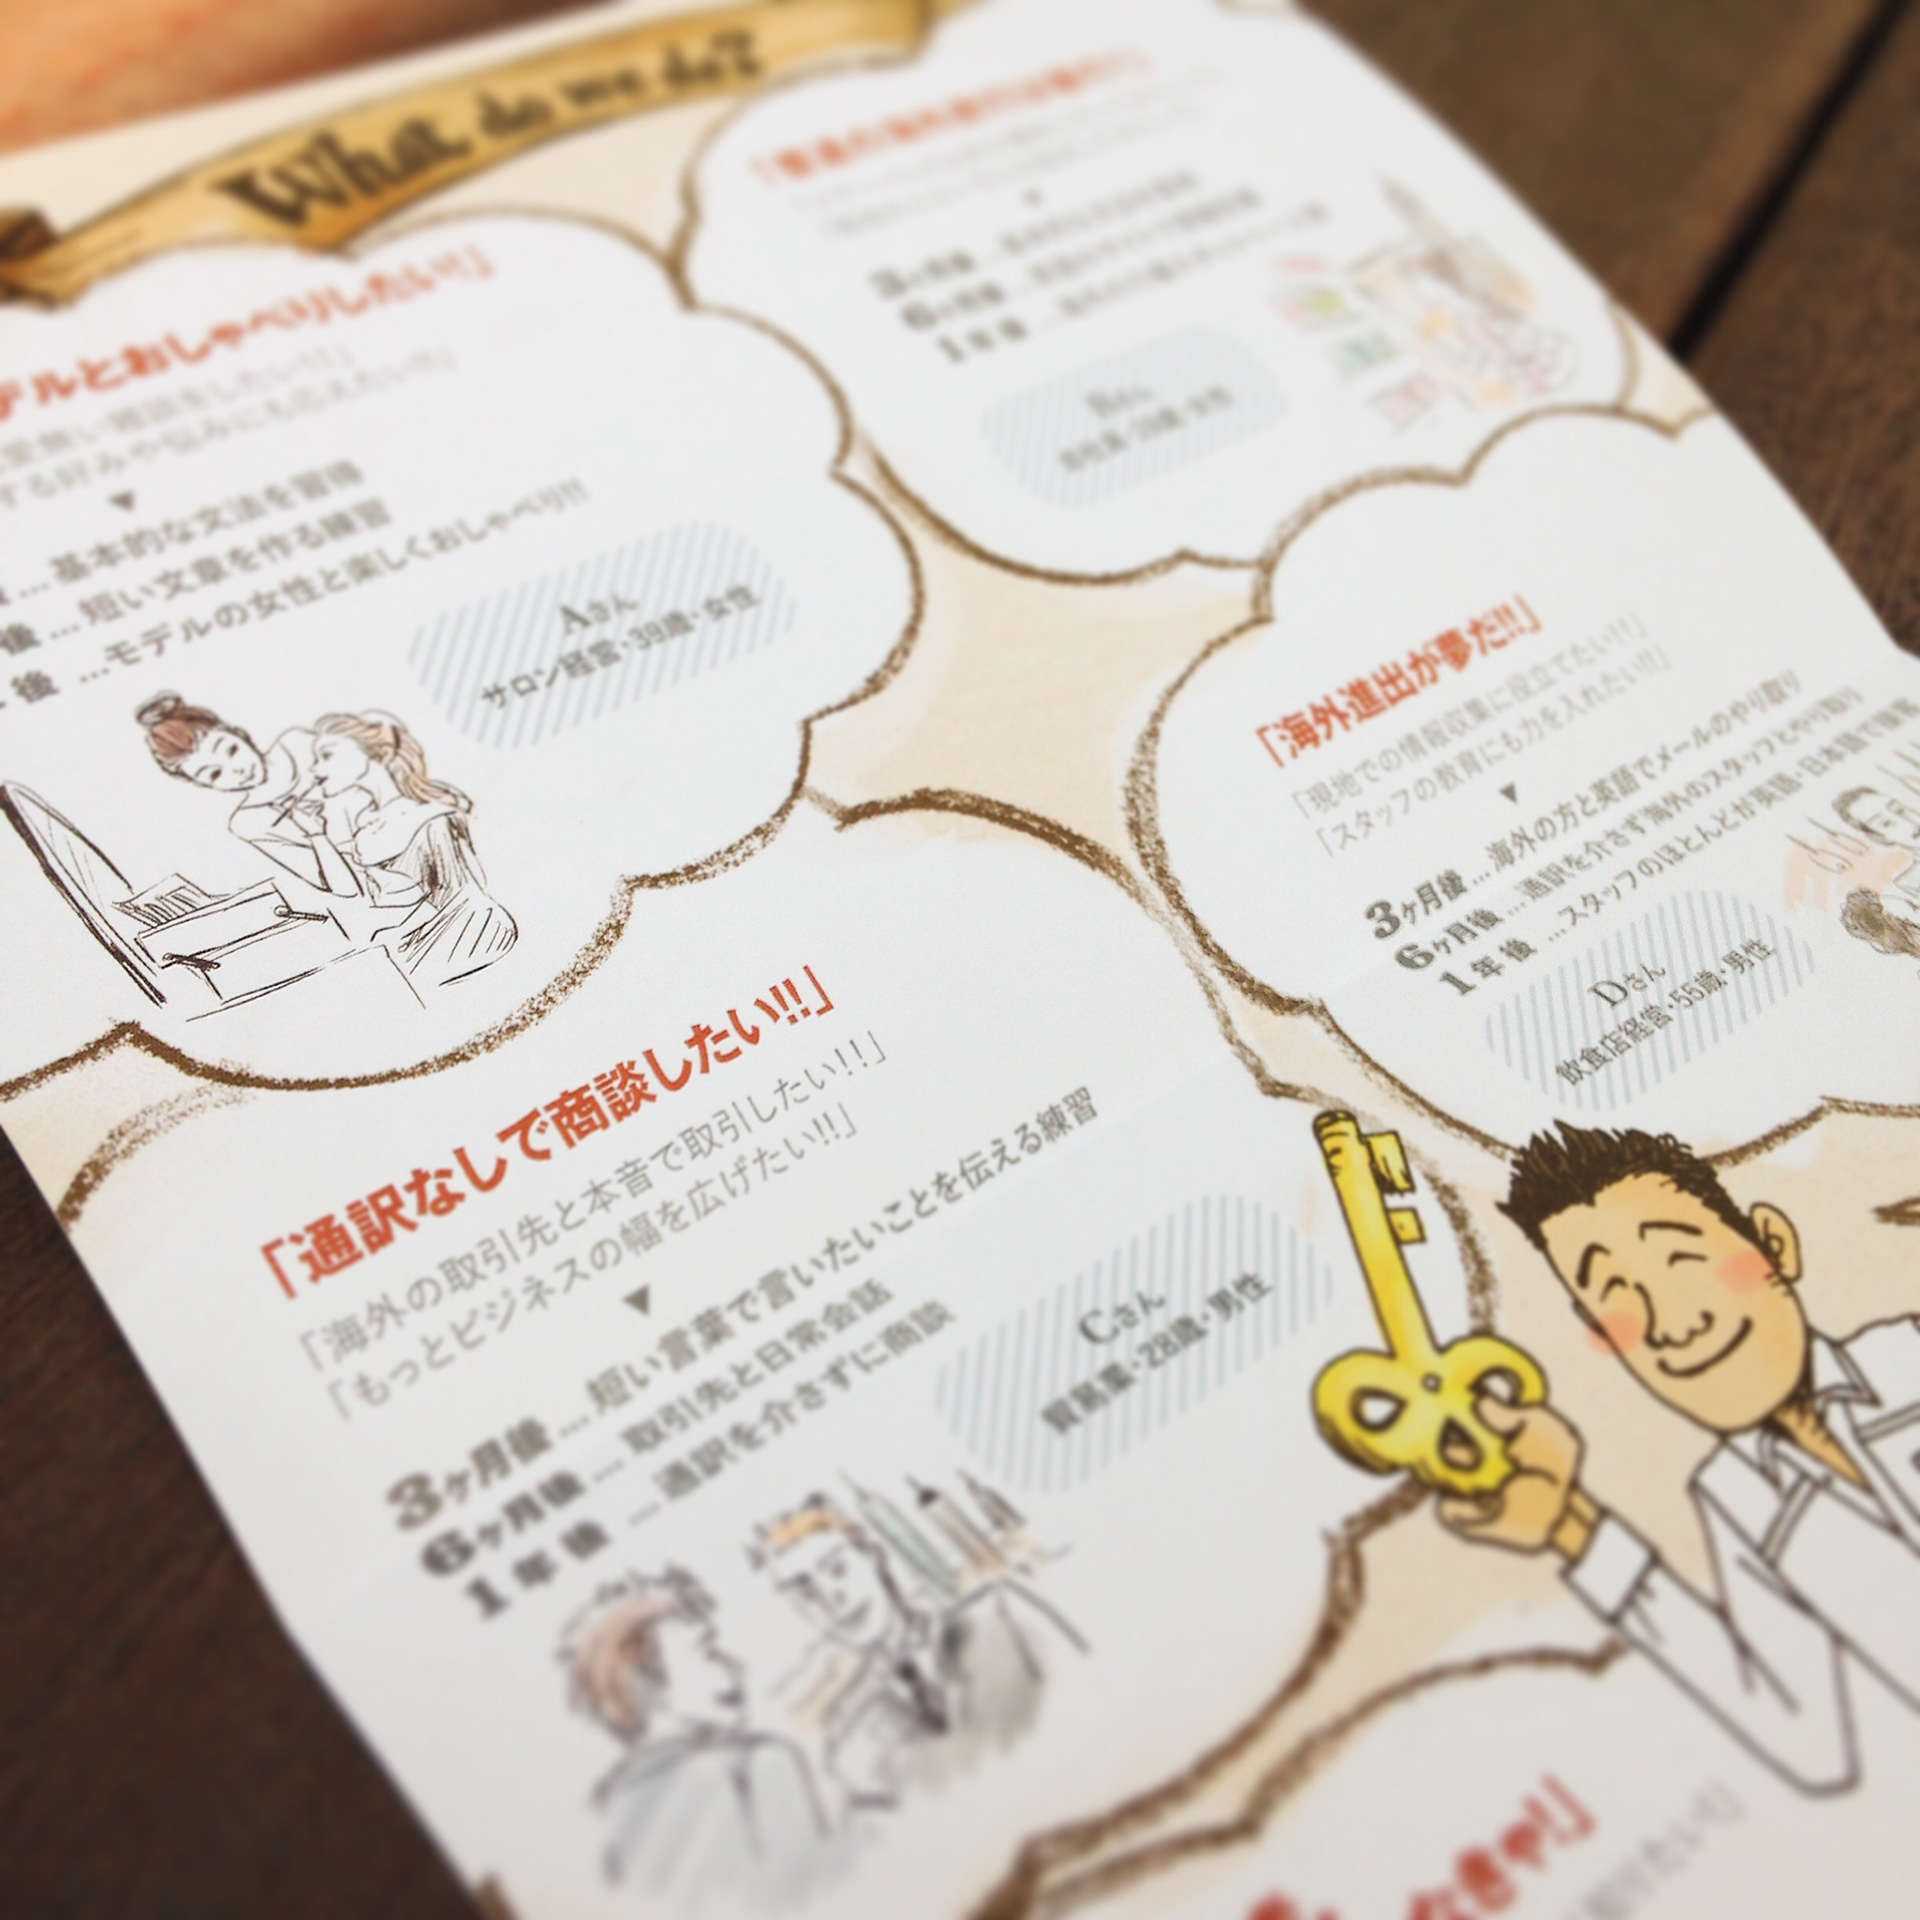 What do we do?
デルとおしゃべりしたい!!」
雑談をしたい!!」
する好みや悩みにも応えたい!!」
▼
...基本的な文法を習得
後...短い文章を作る練習
後...モデルの女性と楽しくおしゃべり!!
Aさん
サロン経営・39歳・女性
3ヶ月後
6ヶ月後
1年後
Bさん
「海外進出が夢だ!!」
「現地での情報収集に役立てたい!!」
「スタッフの教育にも力を入れたい!!」
▼
3ヶ月後...海外の方と英語でメールのやり取り
6ヶ月後...通訳を介さず海外のスタッフとやり取り
1年後...スタッフのほとんどが英語・日本語で接客
Dさん
飲食店経営・55歳・男性
「通訳なしで商談したい!!」
「海外の取引先と本音で取引したい!!」
「もっとビジネスの幅を広げたい!!」
▼
3ヶ月後...短い言葉で言いたいことを伝える練習
6ヶ月後...取引先と日常会話
1年後...通訳を介さずに商談
Cさん
貿易業・28歳・男性
なきゃ!」